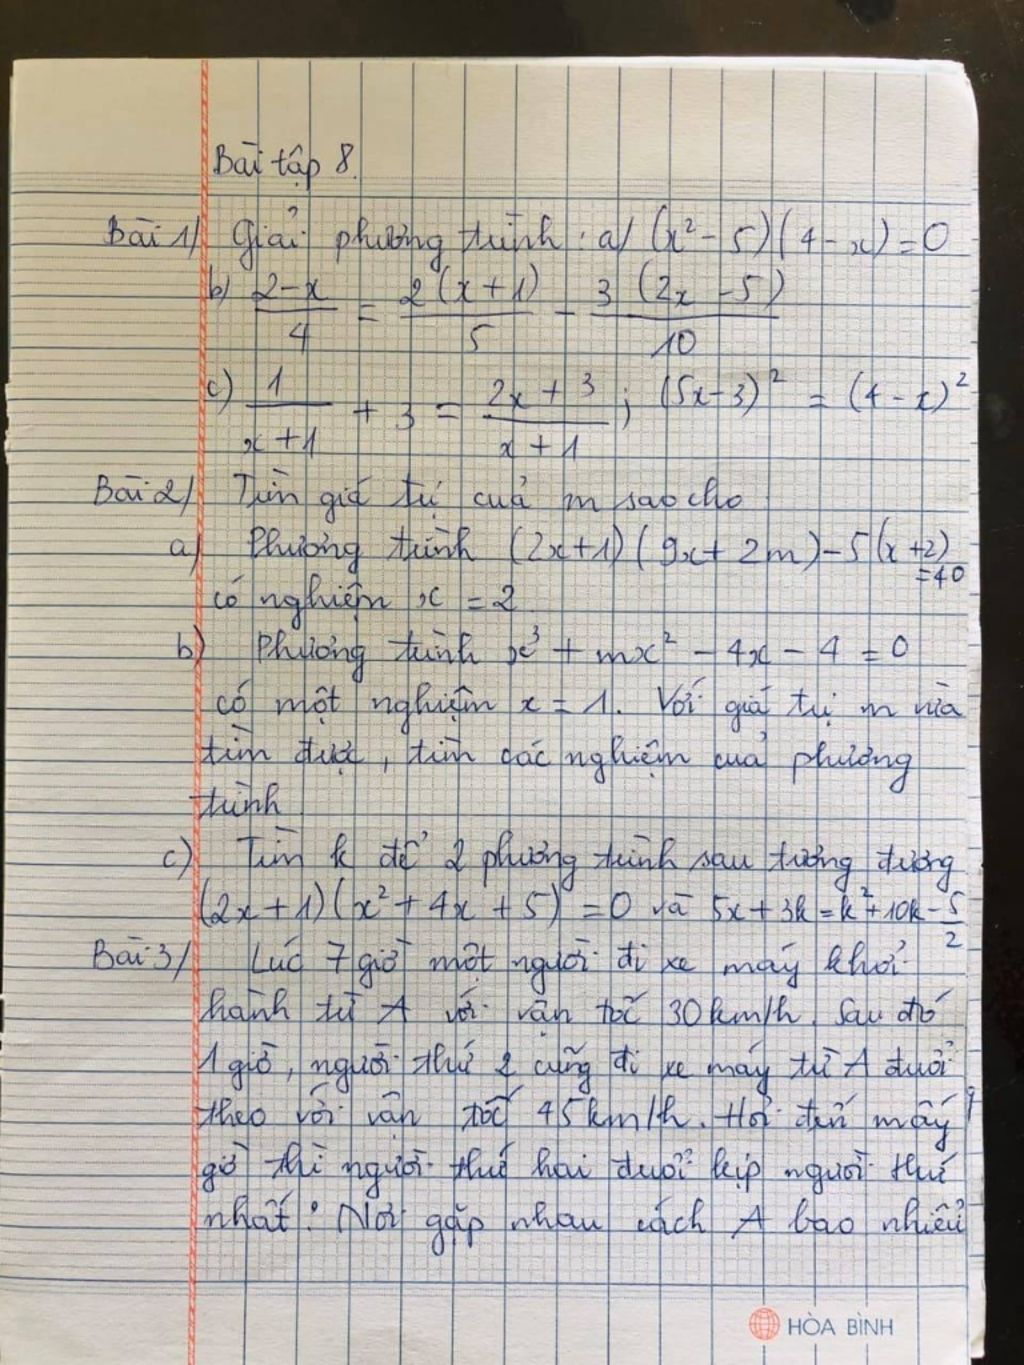 Bài tập 8.
Bài 1/ Giải phương trình: a/ (x² - 5)(4 - x) = 0
b) (2-x)/4 = 2(x+1)/5 - 3(2x-5)/10
c) 1/(x+1) + 3 = (2x+3)/(x+1) ; (5x-3)² = (4-x)²
Bài 2/ Tìm giá trị cuả m sao cho
a) Phương trình (2x+1)(9x+2m) - 5(x+2)
=40
có nghiệm x = 2
b) Phương trình x³ + mx² - 4x - 4 = 0
có một nghiệm x = 1. Với giá trị m vừa
tìm được, tìm các nghiệm cuả phương
trình
c) Tìm k để 2 phương trình sau tương đương
(2x+1)(x²+4x+5) = 0 và 5x+3k=k²+10k-5/2
Bài 3/ Lúc 7 giờ một người đi xe máy khởi
hành từ A với vận tốc 30km/h. Sau đó
1 giờ, người thứ 2 cũng đi xe máy từ A đuổi
theo với vận tốc 45km/h. Hỏi đến mấy
giờ thì người thứ hai đuổi kịp người thứ
nhất? Nơi gặp nhau cách A bao nhiêu
HÒA BÌNH